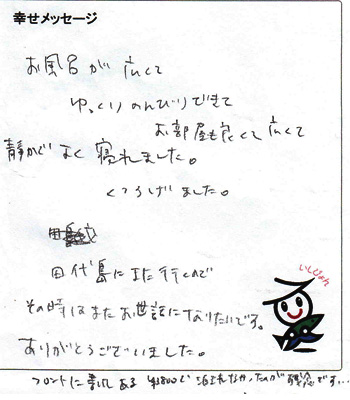 幸せメッセージ
お風呂が広くて
ゆっくりのんびりできて
お部屋も良くて広くて
静かでよく寝れました。
くつろげました。
田代島にまた行くので
その時はまたお世話になりたいです。
ありがとうございました。
いしぴょん
フロントに書いてある ¥3800で泊まれなかったのが残念です…